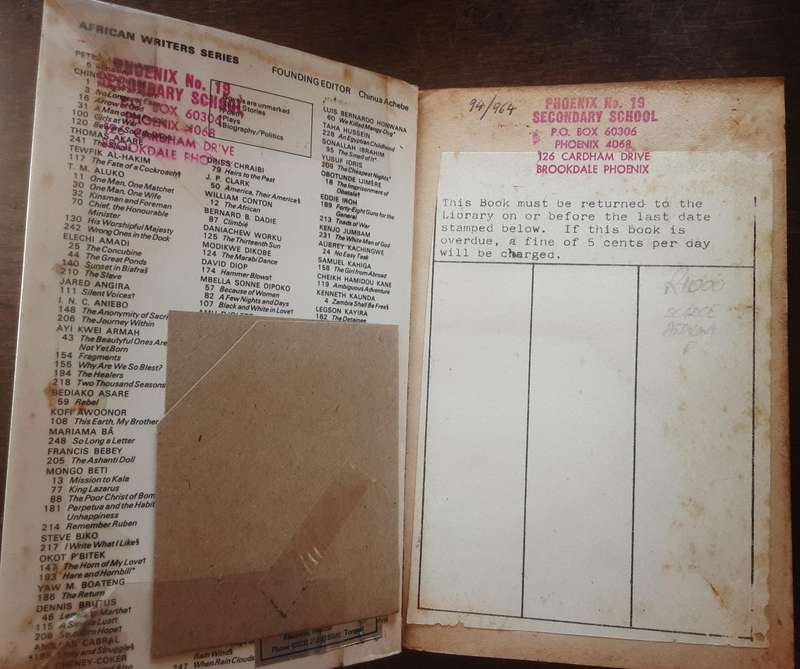 AFRICAN WRITERS SERIES
FOUNDING EDITOR Chinua Achebe
PHOENIX No. 19
SECONDARY SCHOOL
BOX 60306
PHOENIX 4068
CARDHAM DRIVE
BROOKDALE PHOENIX
are unmarked
Stories
Plays
Biography/Politics
THOMAS AKARE
241 The
TEWFIK AL-HAKIM
117 The Fate of a Cockroach¶
T. M. ALUKO
11 One Man, One Matchet
30 One Man, One Wife
32 Kinsman and Foreman
70 Chief, the Honourable
Minister
130 His Worshipful Majesty
242 Wrong Ones in the Dock
ELECHI AMADI
25 The Concubine
44 The Great Ponds
140 Sunset in Biafra§
210 The Slave
JARED ANGIRA
111 Silent Voices†
I. N. C. ANIEBO
148 The Anonymity of Sacri
206 The Journey Within
AYI KWEI ARMAH
43 The Beautyful Ones Are
Not Yet Born
154 Fragments
155 Why Are We So Blest?
194 The Healers
218 Two Thousand Seasons
BEDIAKO ASARE
59 Rebel
KOFI AWOONOR
108 This Earth, My Brother
MARIAMA BÂ
248 So Long a Letter
FRANCIS BEBEY
205 The Ashanti Doll
MONGO BETI
13 Mission to Kala
77 King Lazarus
88 The Poor Christ of Bom
181 Perpetua and the Habit
Unhappiness
214 Remember Ruben
STEVE BIKO
217 I Write What I Like§
OKOT P'BITEK
147 The Horn of My Love†
193 Hare and Hornbill*
YAW M. BOATENG
186 The Return
DENNIS BRUTUS
46 Letters to Martha†
115 A Simple Lust†
208 Stubborn Hope†
AMILCAR CABRAL
198 Unity and Struggle§
CHENEY-COKER
DRISS CHRAIBI
79 Heirs to the Past
J. P. CLARK
50 America, Their America§
WILLIAM CONTON
12 The African
BERNARD B. DADIE
87 Climbié
DANIACHEW WORKU
125 The Thirteenth Sun
MODIKWE DIKOBE
124 The Marabi Dance
DAVID DIOP
174 Hammer Blows†
MBELLA SONNE DIPOKO
57 Because of Women
82 A Few Nights and Days
107 Black and White in Love†
247 When Rain Clouds
LUIS BERNARDO HONWANA
60 We Killed Mangy-Dog*
TAHA HUSSEIN
228 An Egyptian Childhood
SONALLAH IBRAHIM
95 The Smell of It*
YUSUF IDRIS
209 The Cheapest Nights*
OBOTUNDE IJIMÈRE
18 The Imprisonment of
Obatala¶
EDDIE IROH
189 Forty-Eight Guns for the
General
213 Toads of War
KENJO JUMBAM
231 The White Man of God
AUBREY KACHINGWE
24 No Easy Task
SAMUEL KAHIGA
158 The Girl from Abroad
CHEIKH HAMIDOU KANE
119 Ambiguous Adventure
KENNETH KAUNDA
4 Zambia Shall Be Free§
LEGSON KAYIRA
162 The Detainee
94/964
PHOENIX No. 19
SECONDARY SCHOOL
P.O. BOX 60306
PHOENIX 4068
126 CARDHAM DRIVE
BROOKDALE PHOENIX
This Book must be returned to the
Library on or before the last date
stamped below. If this book is
overdue, a fine of 5 cents per day
will be charged.